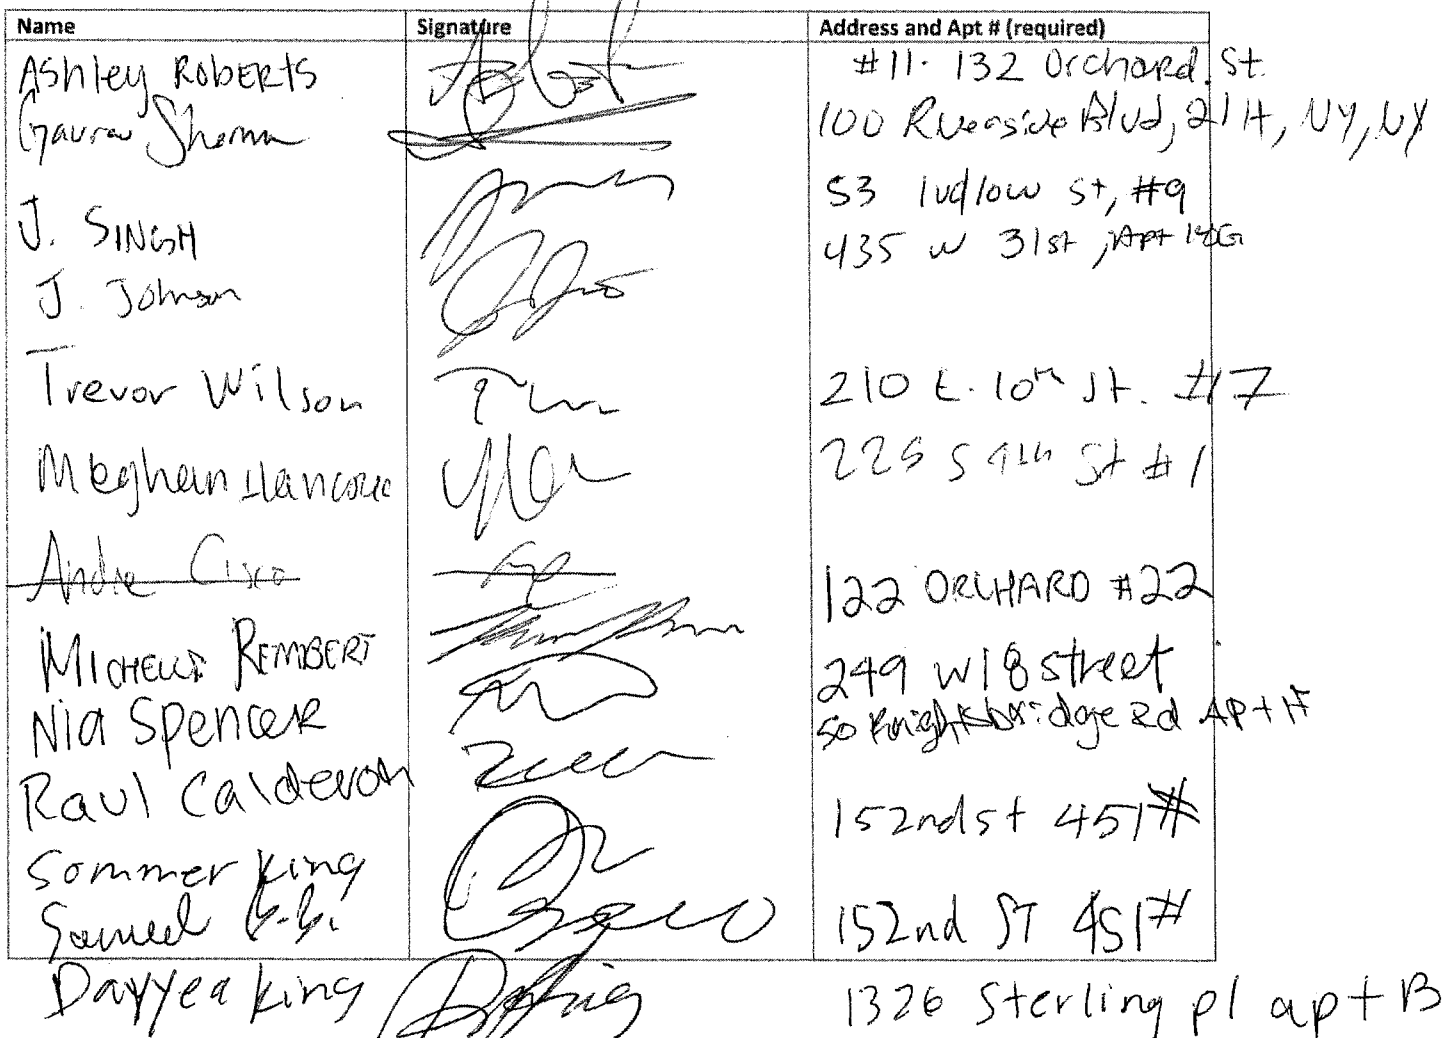 Name Signature Address and Apt # (required)
Ashley ROBERTS #11- 132 Orchard St.
Gaurav Sharma 100 Riverside Blvd, 21H, NY, NY
53 ludlow st, #9
J. SINGH 435 W 31st, Apt 14G
J. Johnson
Trevor Wilson 210 E. 10th St. #17
Meghan 225 S 4th St #1
Andre Cisco
122 ORCHARD #22
REMBERT 249 W 18 street
Nia Spencer 50 Knightsbridge Rd Apt 1F
Raul Calderon
152nd st 451#
Sommer King
Samuel 152nd ST 451#
Dayyea King 1326 Sterling pl apt B